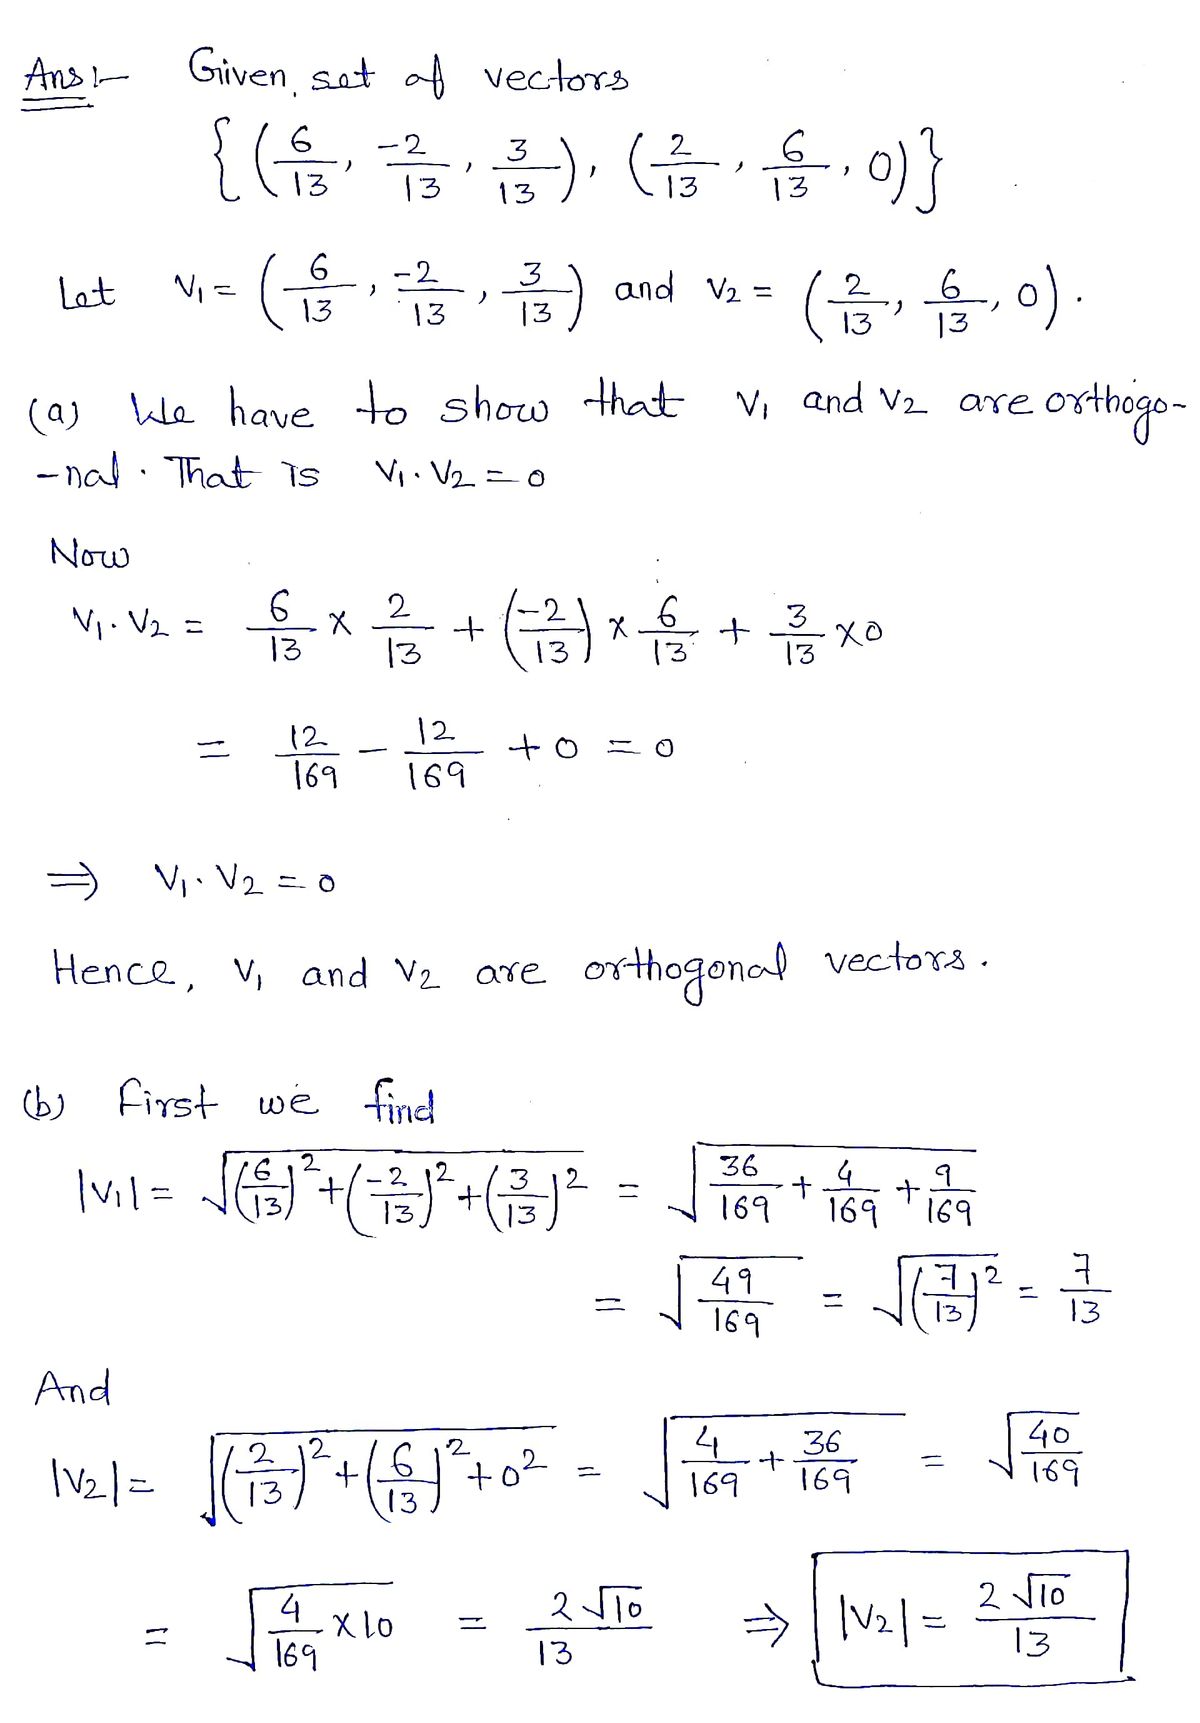 Ans:- Given, set of vectors
{(6/13, -2/13, 3/13), (2/13, 6/13, 0)}
Let V₁ = (6/13, -2/13, 3/13) and V₂ = (2/13, 6/13, 0).
(a) We have to show that V₁ and V₂ are orthogo-
-nal. That is V₁·V₂ = 0
Now
V₁·V₂ = 6/13 × 2/13 + (-2/13) × 6/13 + 3/13 × 0
= 12/169 - 12/169 + 0 = 0
⇒ V₁·V₂ = 0
Hence, V₁ and V₂ are orthogonal vectors.
(b) First we find
|V₁| = √((6/13)² + (-2/13)² + (3/13)²) = √(36/169 + 4/169 + 9/169)
= √(49/169) = √((7/13)²) = 7/13
And
|V₂| = √((2/13)² + (6/13)² + 0²) = √(4/169 + 36/169) = √(40/169)
= √(4/169 × 10) = 2√10/13 ⇒ |V₂| = 2√10/13